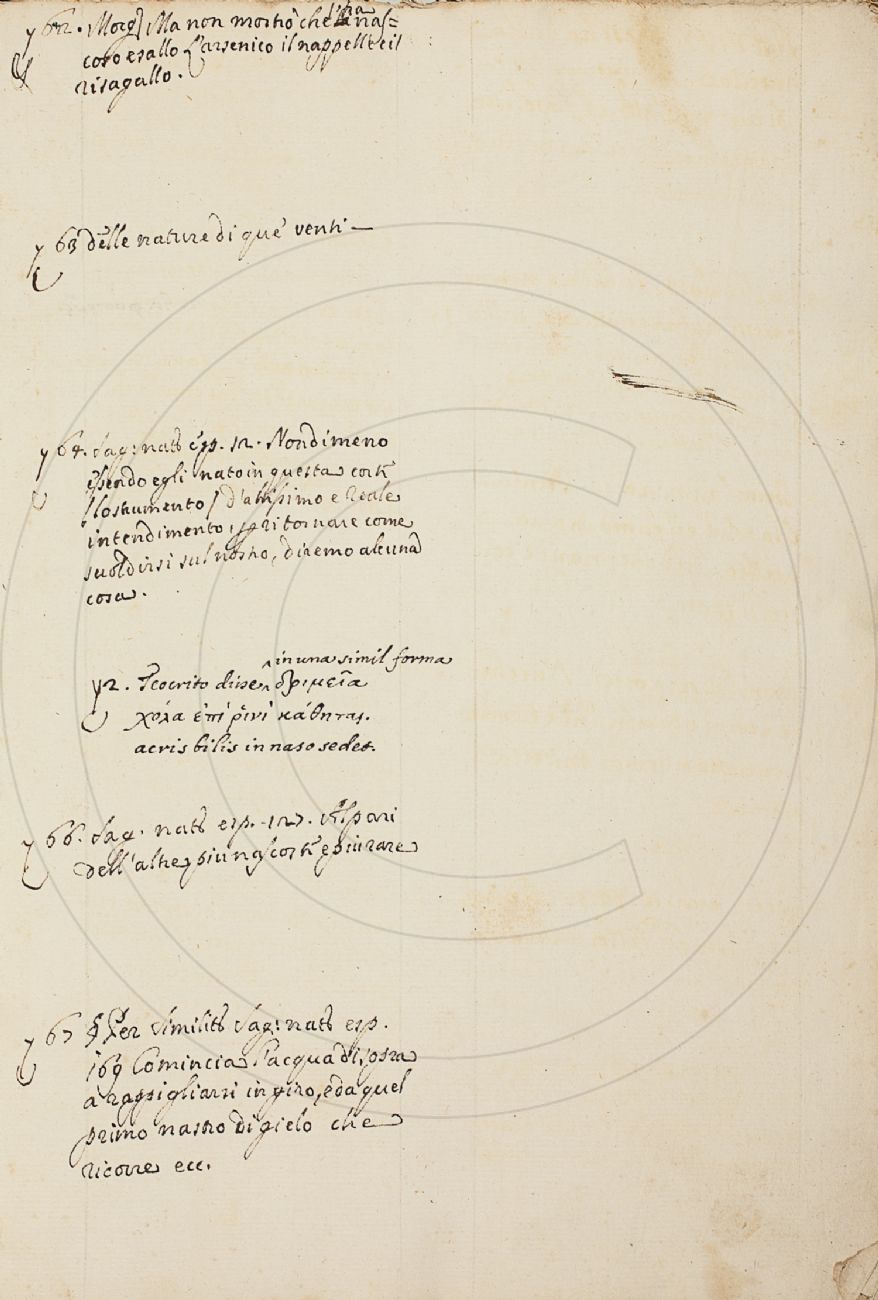 γ 62. Morg] Ma non mostrò che l'ha nas=
coso e sallo L'arsenico il nappello e il
risagallo.
γ 63 delle nature di que' venti —
γ 64. Sag: nat: esp. 12. Nondimeno
essendo egli nato in questa corte
/ lo strumento / d'altissimo e reale
intendimento, per ritornare come
suol dirsi sul nostro, diremo alcuna
cosa.
in una simil forma
γ 2. Teocrito disse ^ δριμεῖα
χολα ἐπὶ ῥινὶ κάθηται.
acris bilis in naso sedet.
γ 66. Sag. nat: esp. 127. Al pari
dell'altre piu nascoste e piu rare
γ 67 § Per Similit: Sag: nat: esp.
169 Comincia l'acqua di sopra
a rappigliarsi in giro, e da quel
primo nastro di gielo che
ricorre ecc.